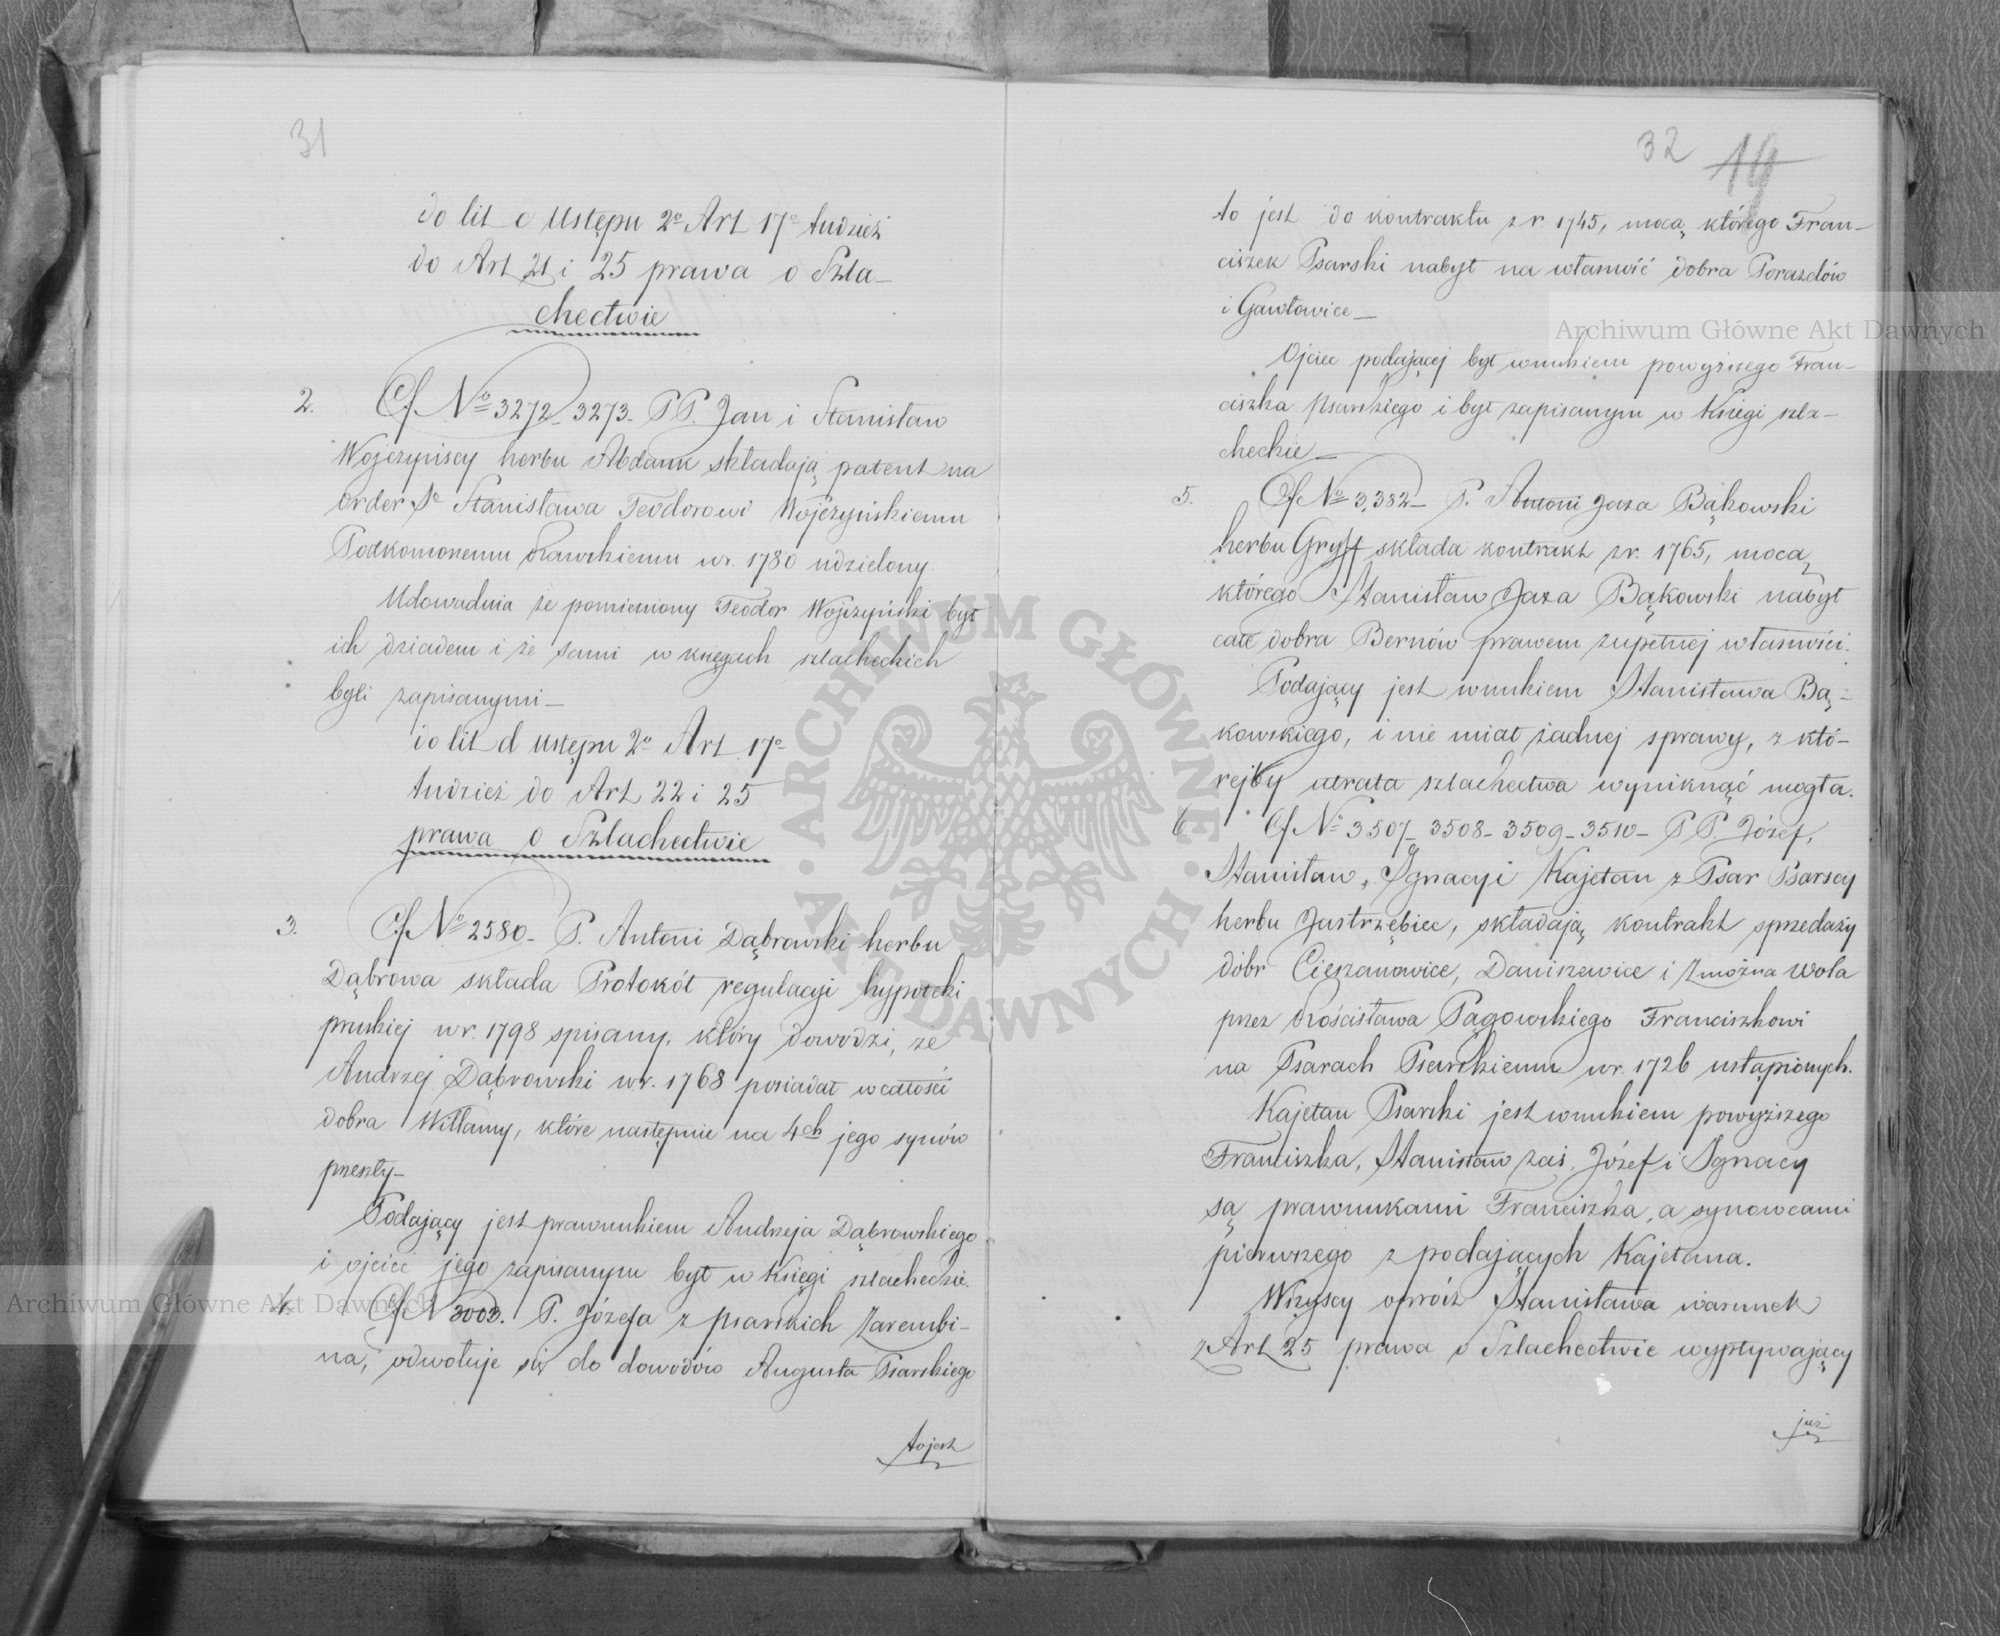 31
do lit c Ustępu 2º Art 17º tudzież
do Art 21 i 25 prawa o Szla-
chectwie
2. Cf Nº 3272_3273_ PP. Jan i Stanisław
Wojczyńscy herbu Abdank składają patent na
order Sº Stanisława Teodorowi Wojczyńskiemu
Podkomorzemu Rawskiemu w r. 1780 udzielony.
Udowadnia że pomieniony Teodor Wojczyński był
ich dziadem i że sami w księgach szlacheckich
byli zapisanymi_
do lit d Ustępu 2º Art 17º
tudzież do Art 22 i 25
prawa o Szlachectwie
3. Cf Nº 2580_ P. Antoni Dąbrowski herbu
Dąbrowa składa Protokół regulacyi hypoteki
pruskiej w r. 1798 spisany, który dowodzi, że
Andrzej Dąbrowski w r. 1768 posiadał w całości
dobra Witkamy, które następnie na 4ch jego synów
przeszły_
Podający jest prawnukiem Andrzeja Dąbrowskiego
i ojciec jego zapisanym był w Księgi szlacheckie.
4. Cf N 3003. P. Józefa z Psarskich Zarembi-
na, odwołuje się do dowodów Augusta Psarskiego
to jest
32 19
to jest do kontraktu z r. 1745, mocą którego Fran-
ciszek Psarski nabył na własność dobra Porazdów
i Gawłowice_
Ojciec podającej był wnukiem powyższego Fran-
ciszka Psarskiego i był zapisanym w Księgi szla-
checkie_
5. Cf Nº 3,382_ P. Antoni Jaxa Bąkowski
herbu Gryff składa kontrakt z r. 1765, mocą
którego Stanisław Jaxa Bąkowski nabył
całe dobra Bernów prawem zupełnej własności.
Podający jest wnukiem Stanisława Bą-
kowskiego, i nie miał żadnej sprawy, z któ-
rejby utrata szlachectwa wyniknąć mogła.
6 Cf Nº 3507_3508_3509_3510_ PP. Józef,
Stanisław, Ignacy i Kajetan z Psar Psarscy
herbu Jastrzębiec, składają kontrakt sprzedaży
dóbr Cieszanowice, Daniszewice i Zmożna Wola
przez Rościsława Pągowskiego Franciszkowi
na Psarach Psarskiemu w r. 1726 ustąpionych.
Kajetan Psarski jest wnukiem powyższego
Franciszka, Stanisław zaś, Józef i Ignacy
są prawnukami Franciszka, a synowcami
pierwszego z podających Kajetana.
Wszyscy oprócz Stanisława warunek
z Art 25 prawa o Szlachectwie wypływający
już
Archiwum Główne Akt Dawnych
Archiwum Główne Akt Dawnych
ARCHIWUM GŁÓWNE AKT DAWNYCH